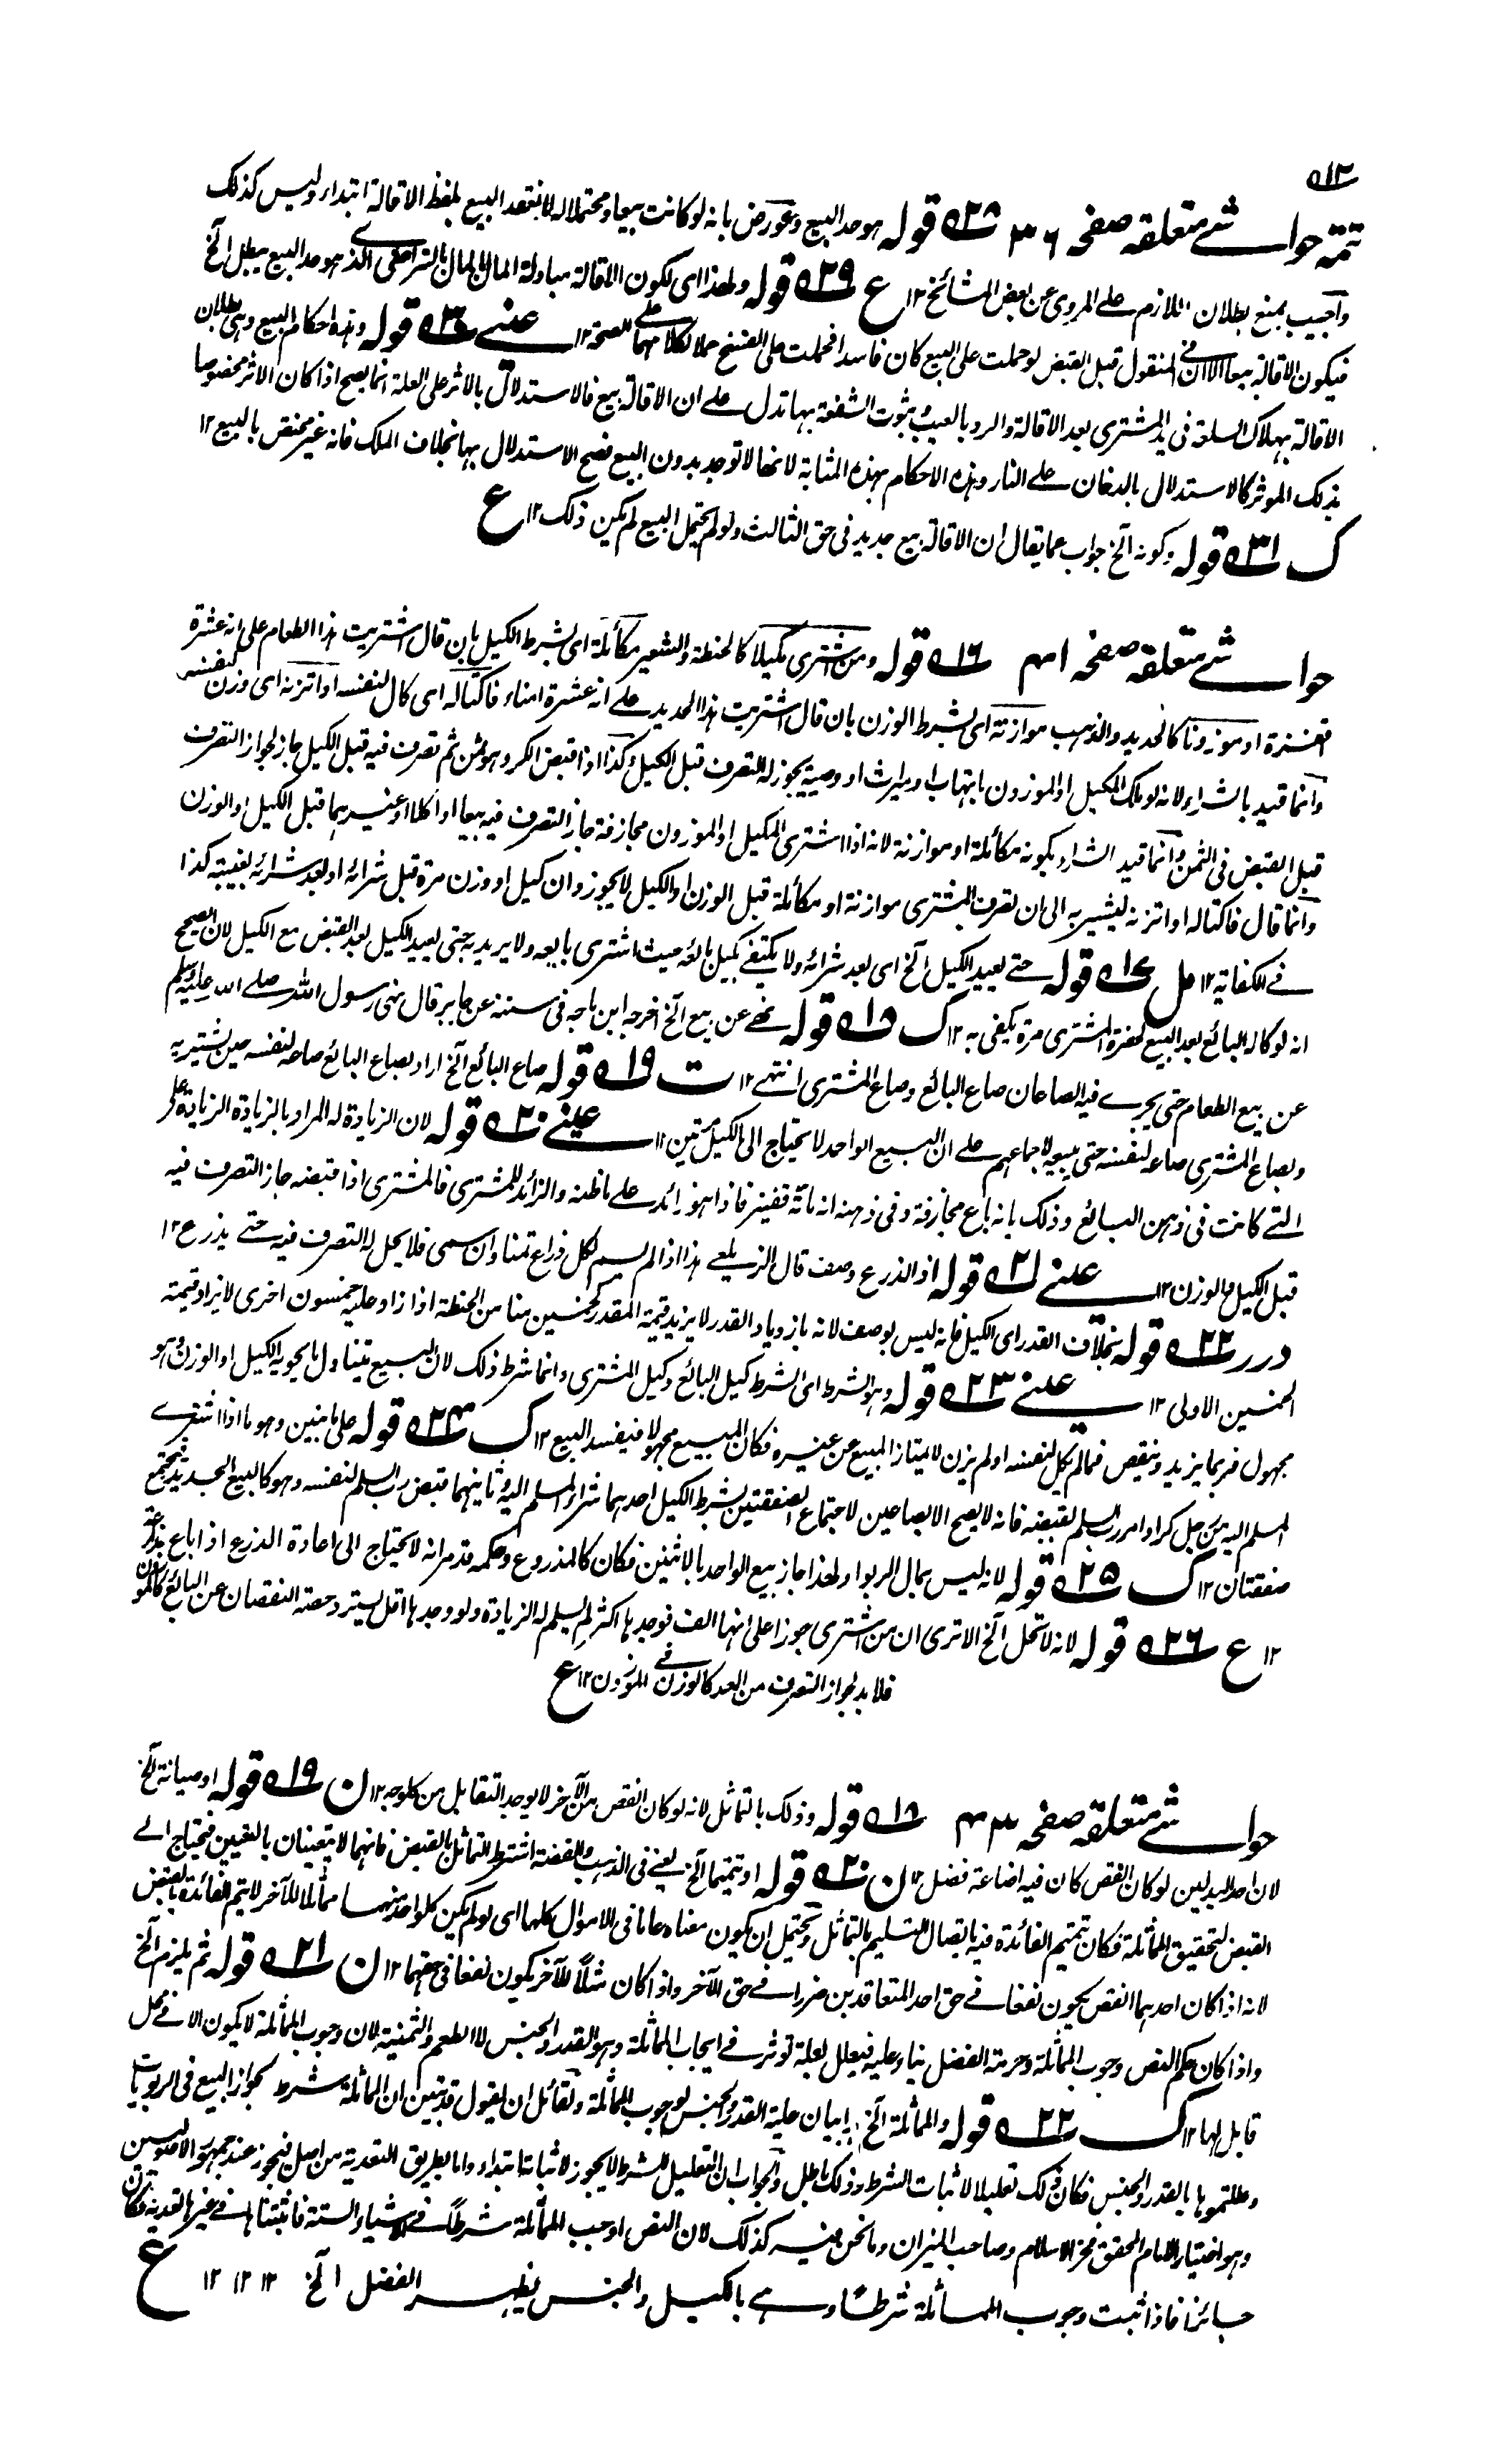 ۵۱۲
تتمة حواشي متعلقه صفحه ۳۶ ۵۲۸ قوله هو حد البيع وعورض بانه لو كانت بيعا ومحتملا له لا نعقد البيع بلفظ الاقالة ابتداء وليس كذلك
واجيب بمنع بطلان اللازم على المروي عن بعض المشائخ ۱۲ ع ۵۲۹ قوله ولهذا اي لكون الاقالة مبادلة المال بالمال بالتراضي الذي هو حد البيع يبطل آلخ
فيكون الاقالة بيعا الا ان في المنقول قبل القبض لو حملت على البيع كان فاسدا فحملت على الفسخ حملا لكلامهما على الصحة ۱۲ عيني ۵۳۰ قوله وهذه احكام البيع وهي بطلان
الاقالة بهلاك السلعة في يد المشتري بعد الاقالة والرد بالعيب وثبوت الشفعة بها تدل على ان الاقالة بيع فالاستدلال بالاثر على العلة انما يصح اذا كان الاثر مخصوصا
بذلك الموثر كالاستدلال بالدخان على النار وهذه الاحكام بهذه المثابة لانها لا توجد بدون البيع فصح الاستدلال بها بخلاف الملك فانه غير مختص بالبيع ۱۲
ك ۵۳۱ قوله وكونه آلخ جواب عما يقال ان الاقالة بيع جديد في حق الثالث ولو لم يحتمل البيع لم يكن ذلك ۱۲ ع
حواشي متعلقه صفحه ۴۱ ۵۱۶ قوله ومن اشترى مكيلا كالحنطة والشعير مكائلة اي بشرط الكيل بان قال اشتريت هذا الطعام على انه عشرة
اقفزة او موزونا كالحديد والذهب موازنة اي بشرط الوزن بان قال اشتريت هذا الحديد على انه عشرة امناء فاكتاله اي كال لنفسه او اتزنه اي وزن لنفسه
وانما قيد بالشراء لانه لو ملك المكيل او الموزون بانتهاب او ميراث او وصية يجوز له التصرف قبل الكيل وكذا اذا قبض الكر وهو ثمن ثم تصرف فيه قبل الكيل جاز لجواز التصرف
قبل القبض في الثمن وانما قيد الشراء بكونه مكائلة او موازنة لانه اذا اشترى المكيل او الموزون مجازفة جاز التصرف فيه بيعا او اكلا او غيرهما قبل الكيل او الوزن
وانما قال فاكتاله او اتزنه ليشير به الى ان تصرف المشتري موازنة او مكائلة قبل الوزن او الكيل لا يجوز وان كيل او وزن مرة قبل شرائه او بعد شرائه بغيبته كذا
في الكفاية ۱۲ مل ۵۱۷ قوله حتى يعيد الكيل آلخ اي بعد شرائه ولا يكتفي بكيل بائعه حيث اشترى بايعه ولا يريد به حتى يعيد الكيل بعد القبض مع الكيل لان الصحيح
انه لو كاله البائع بعد البيع بحضرة المشتري مرة يكفي به ۱۲ ك ۵۱۸ قوله نهى عن بيع آلخ اخرجه ابن ماجه في سننه عن جابر قال نهى رسول الله صلى الله عليه وسلم
عن بيع الطعام حتى يجري فيه الصاعان صاع البائع وصاع المشتري انتهى ۱۲ ت ۵۱۹ قوله صاع البائع آلخ اراد بصاع البائع صاعه لنفسه حين يشتريه
وبصاع المشتري صاعه لنفسه حتى يبيعه لاجماعهم على ان البيع الواحد لا يحتاج الى الكيل مرتين ۱۲ عيني ۵۲۰ قوله لان الزيادة له المراد بالزيادة الزيادة على
التي كانت في ذهن البائع وذلك بانه باع مجازفة وفي ذهنه انه مائة قفيز فاذا هو زائد على ما ظنه والزائد للمشتري فالمشتري اذا قبضه جاز التصرف فيه
قبل الكيل والوزن ۱۲ عيني ۵۲۱ قوله اذ الذرع وصف قال الزيلعي هذا اذا لم يسم لكل ذراع ثمنا وان سمى فلا يحل له التصرف فيه حتى يذرع ۱۲
درر ۵۲۲ قوله بخلاف القدر اي الكيل فانه ليس بوصف لانه بازدياد القدر لا يزيد قيمة المقدر كخمسين منا من الحنطة اذا زاد عليه خمسون اخرى لا يزاد قيمته
الخمسين الاولى ۱۲ عيني ۵۲۳ قوله وهو الشرط اي الشرط كيل البائع وكيل المشتري وانما شرط ذلك لان البيع يتناول ما يحويه الكيل او الوزن وهو
مجهول فربما يزيد وينقص فما لم يكل لنفسه او لم يزن لا يمتاز المبيع عن غيره فكان المبيع مجهولا فيفسد البيع ۱۲ ك ۵۲۴ قوله على ما نبين وهو ما اذا اشترى
المسلم اليه من رجل كرا وامر رب السلم بقبضه فانه لا يصح الا بصاعين لاجتماع الصفقتين بشرط الكيل احدهما شراء المسلم اليه وثانيهما قبض رب السلم لنفسه وهو كالبيع الجديد فيجتمع
صفقتان ۱۲ ك ۵۲۵ قوله لانه ليس بمال الربوا ولهذا جاز بيع الواحد بالاثنين فكان كالمذروع وحكمه قد مر انه لا يحتاج الى اعادة الذرع اذا باع مذارعة
۱۲ ع ۵۲۶ قوله لانه لا تحل آلخ الا ترى ان من اشترى جوزا على انها الف فوجدها اكثر لم يسلم له الزيادة ولو وجدها اقل يسترد حصة النقصان عن البائع كالموزون
فلا بد لجواز التصرف من العد كالوزن في الموزون ۱۲ ع
حواشي متعلقه صفحه ۴۳ ۵۱۸ قوله وذلك بالتماثل لانه لو كان انقص من الآخر لا يوجد التقابل من كل وجه ۱۲ ن ۵۱۹ قوله او صيانة آلخ
لان احد البدلين لو كان انقص كان فيه اضاعة فضل ۱۲ ن ۵۲۰ قوله او تتميما آلخ يعني في الذهب والفضة اشترط التماثل بالقبض فانهما لا يتعينان بالتعيين فيحتاج الى
القبض لتحقيق المماثلة فكان تتميم الفائدة فيه باتصال التسليم بالتماثل ويحتمل ان يكون معناه عاما في الاموال كلها اي لو لم يكن كل واحد منهما مماثلا للآخر لا يتم الفائدة بالقبض
لانه اذا كان احدهما انقص يكون نفعا في حق احد المتعاقدين ضررا في حق الآخر واذا كان مثلا للآخر يكون نفعا في حقهما ۱۲ ن ۵۲۱ قوله ثم يلزم آلخ
واذا كان حكم النص وجوب المماثلة وحرمة الفضل بناء عليه فيعلل بعلة توثر في ايجاب المماثلة وهو القدر والجنس لا الطعم والثمنية لان وجوب المماثلة لا يكون الا في محل
قابل لها ۱۲ ك ۵۲۲ قوله والمماثلة آلخ بيان علية القدر والجنس لوجوب المماثلة ولقائل ان يقول قد تبين ان المماثلة شرط لجواز البيع في الربويات
وعللتموها بالقدر والجنس فكان ذلك تعليلا لاثبات الشرط وذلك باطل والجواب ان التعليل للشرط لا يجوز لاثباته ابتداء واما بطريق التعدية من اصل فيجوز عند جمهور الاصوليين
وهو اختيار الامام المحقق فخر الاسلام وصاحب الميزان وما نحن فيه كذلك لان النص اوجب المماثلة شرطا في الاشياء الستة فاثبتناها في غيرها تعدية فكان
جائزا فاذا ثبت وجوب المماثلة شرطا وهي بالكيل والجنس يظهر الفضل آلخ ۱۲ ۱۲ ۱۲ ع